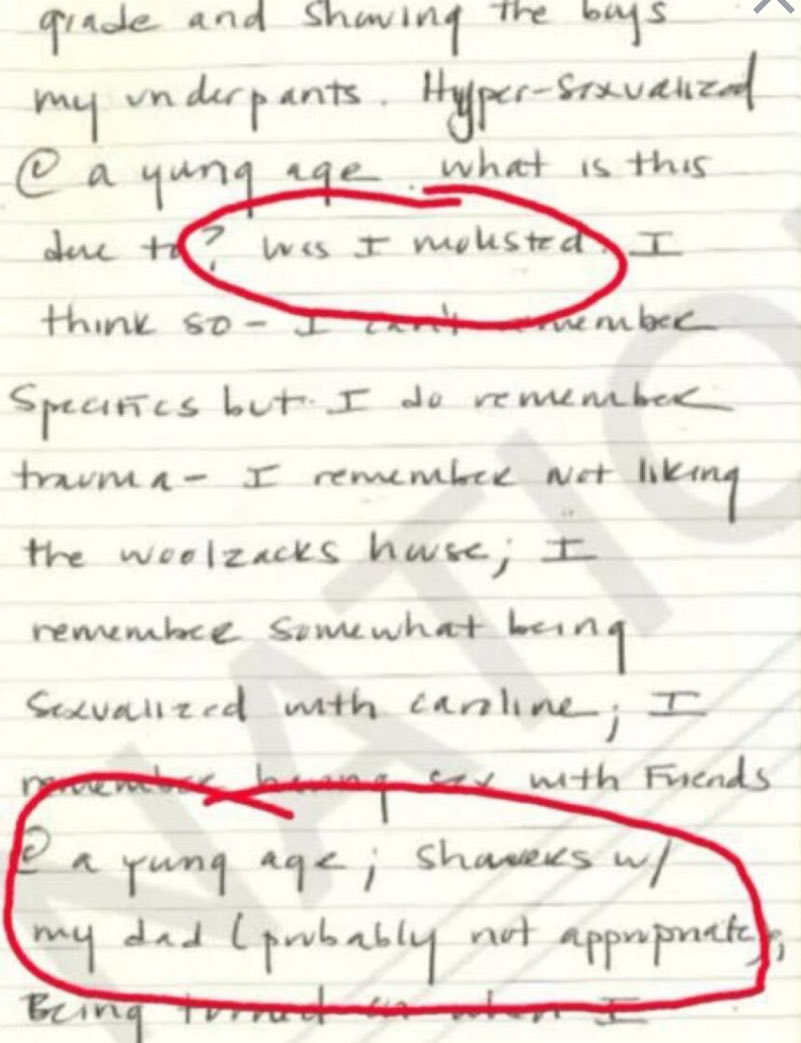 grade and showing the boys
my underpants. Hyper-sexualized
@ a yung age. what is this
due to? Was I molested. I
think so - I can't remember
Specifics but I do remember
trauma - I remember not liking
the woolzacks house; I
remember somewhat being
sexualized with caroline; I
remember having sex with Friends
@ a yung age; showers w/
my dad (probably not appropriate);
Being turned on when I
NATIO